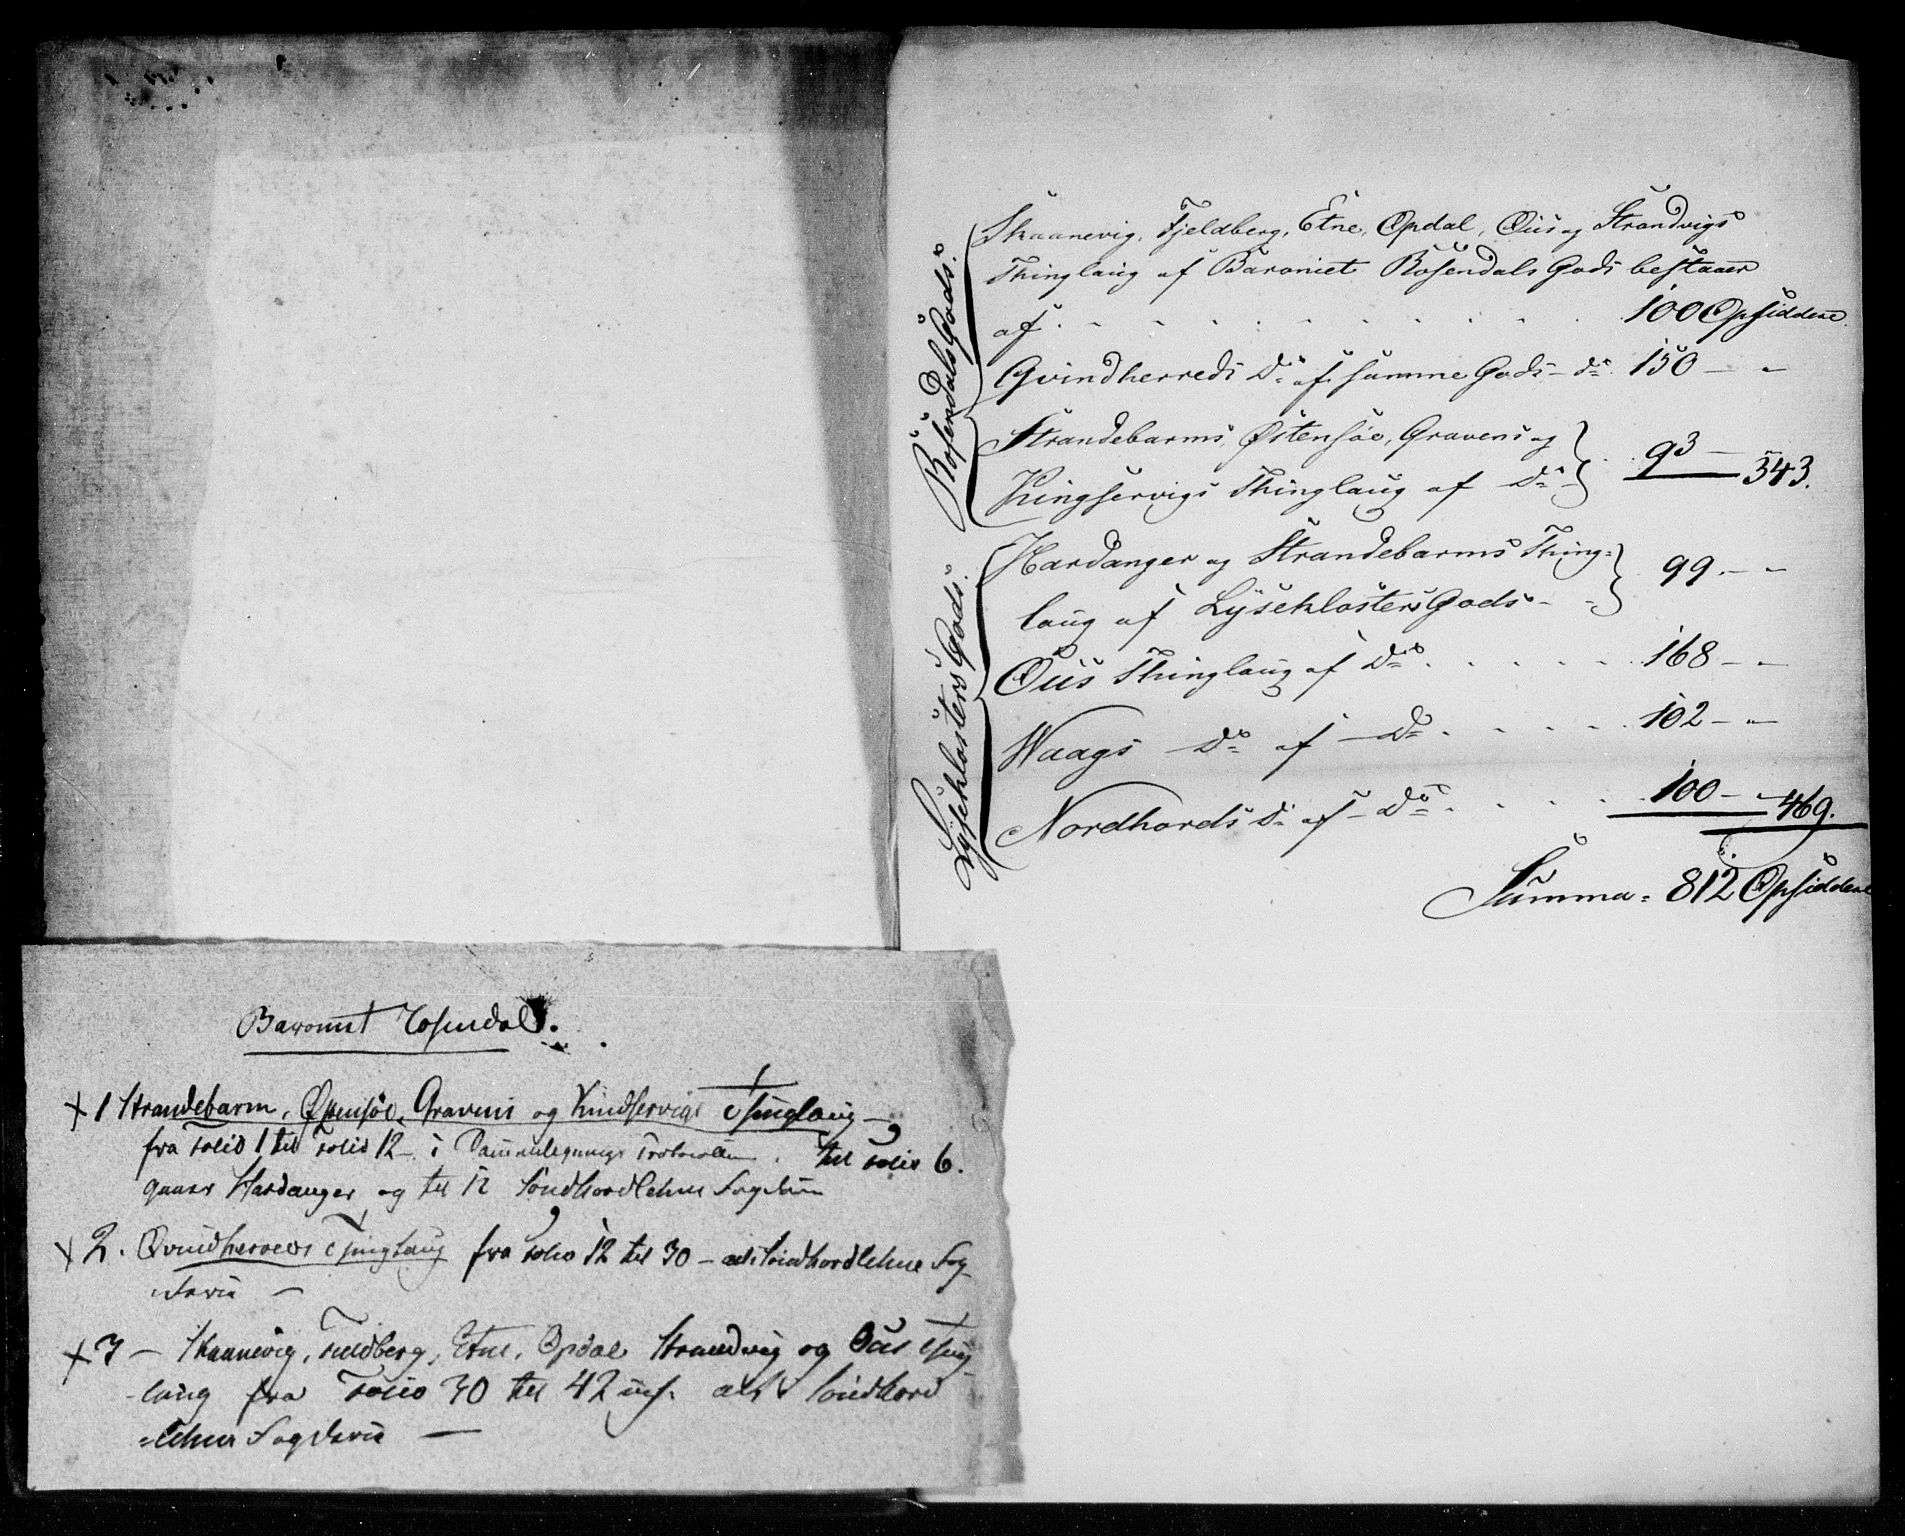 Rosendals Gods.
Skaanevig, Fjeldberg, Etne, Opdal, Ous og Strandvigs
Thinglaug af Baroniet Rosendals Gods bestaaer
af . . . . . . . . . . 100 Opsiddere
Qvindherreds Do af samme Gods - do. 150 - "
Strandebarms, Østensøe, Gravens og
Kingservigs Thinglaug af Do - 93 - 343.
Lysekloster Gods.
Hardanger og Strandebarms Thing=
laug af Lyseklosters Gods - - 99. - "
Ous Thinglaug af Do . . . . . 168 - "
Waags Do af Do . . . . 102 - "
Nordhords Do af Do . . . . 100 - " 469.
Summa = 812 Opsiddere
Baroniet Rosendal.
+ 1 Strandebarm, Østensøe, Gravens og Kindservigs Thinglaug -
fra Folio 1 til Folio 12 - i Protocollen . til Folio 6.
gaaer Hardanger og til 12 Søndhordlehns Fogderie
+ 2. Qvindherreds Thinglaug fra Folio 12 til 30 - alt Søndhordlehns Fog-
derie -
+ 3 - Skaanevig, Fieldberg, Etne, Opdal Strandvig og Ous Thing-
laug fra Folio 30 til 42 inf. alt Søndhord
=lehns Fogderie -